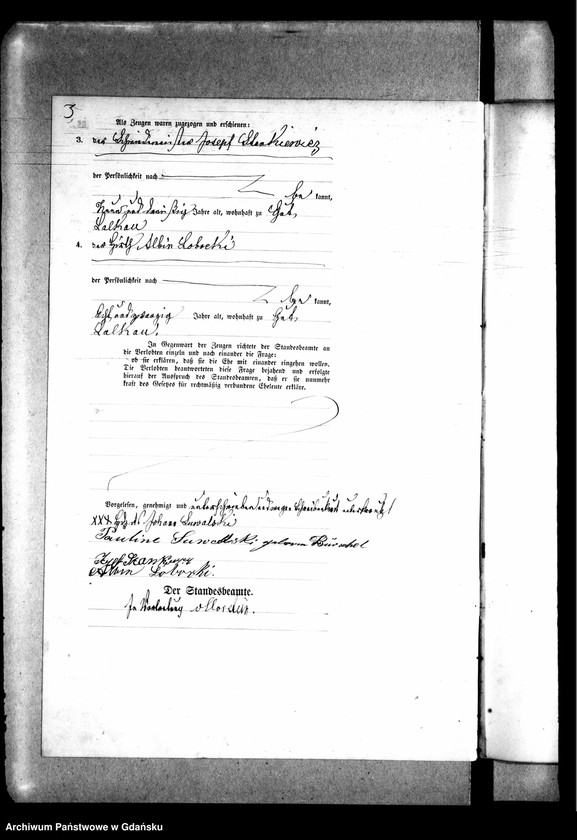 3
Als Zeugen waren zugezogen und erschienen:
3. der Schmiedemeister Josef
der Persönlichkeit nach
be kannt,
Neun und dreißig Jahre alt, wohnhaft zu Gut
Lalkau
4. der Hirth Albin Loborki
der Persönlichkeit nach
be kannt,
Acht und zwanzig Jahre alt, wohnhaft zu Gut
Lalkau.
In Gegenwart der Zeugen richtete der Standesbeamte an
die Verlobten einzeln und nach einander die Frage:
ob sie erklären, daß sie die Ehe mit einander eingehen wollen.
Die Verlobten beantworteten diese Frage bejahend und erfolgte
hierauf der Ausspruch des Standesbeamten, daß er sie nunmehr
kraft des Gesetzes für rechtmäßig verbundene Eheleute erkläre.
Vorgelesen, genehmigt und
XXX Johann Suwalski
Pauline Suwalski, geborne
Albin Loborki.
Der Standesbeamte.
In Vertretung
Archiwum Państwowe w Gdańsku